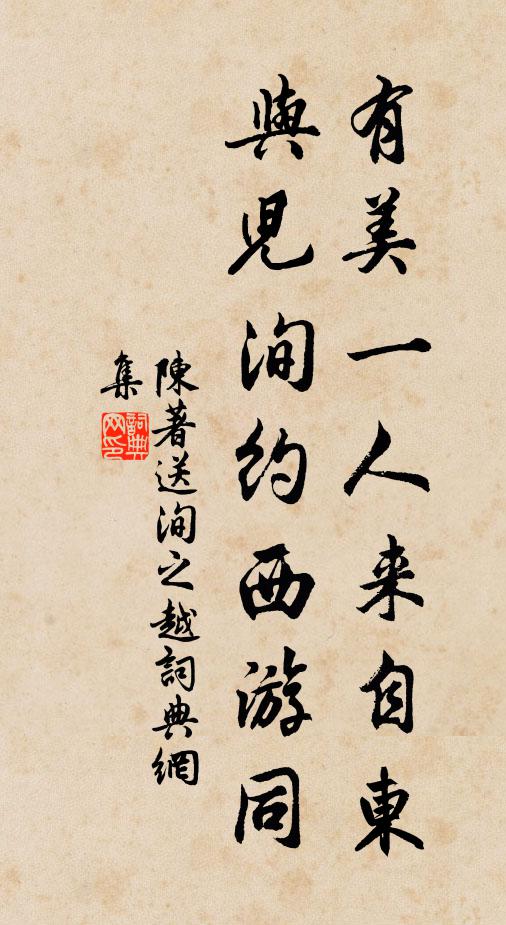 有美一人来自東
與児洵約西游同
陳著送洵之越詞典網
集
詞典
网印